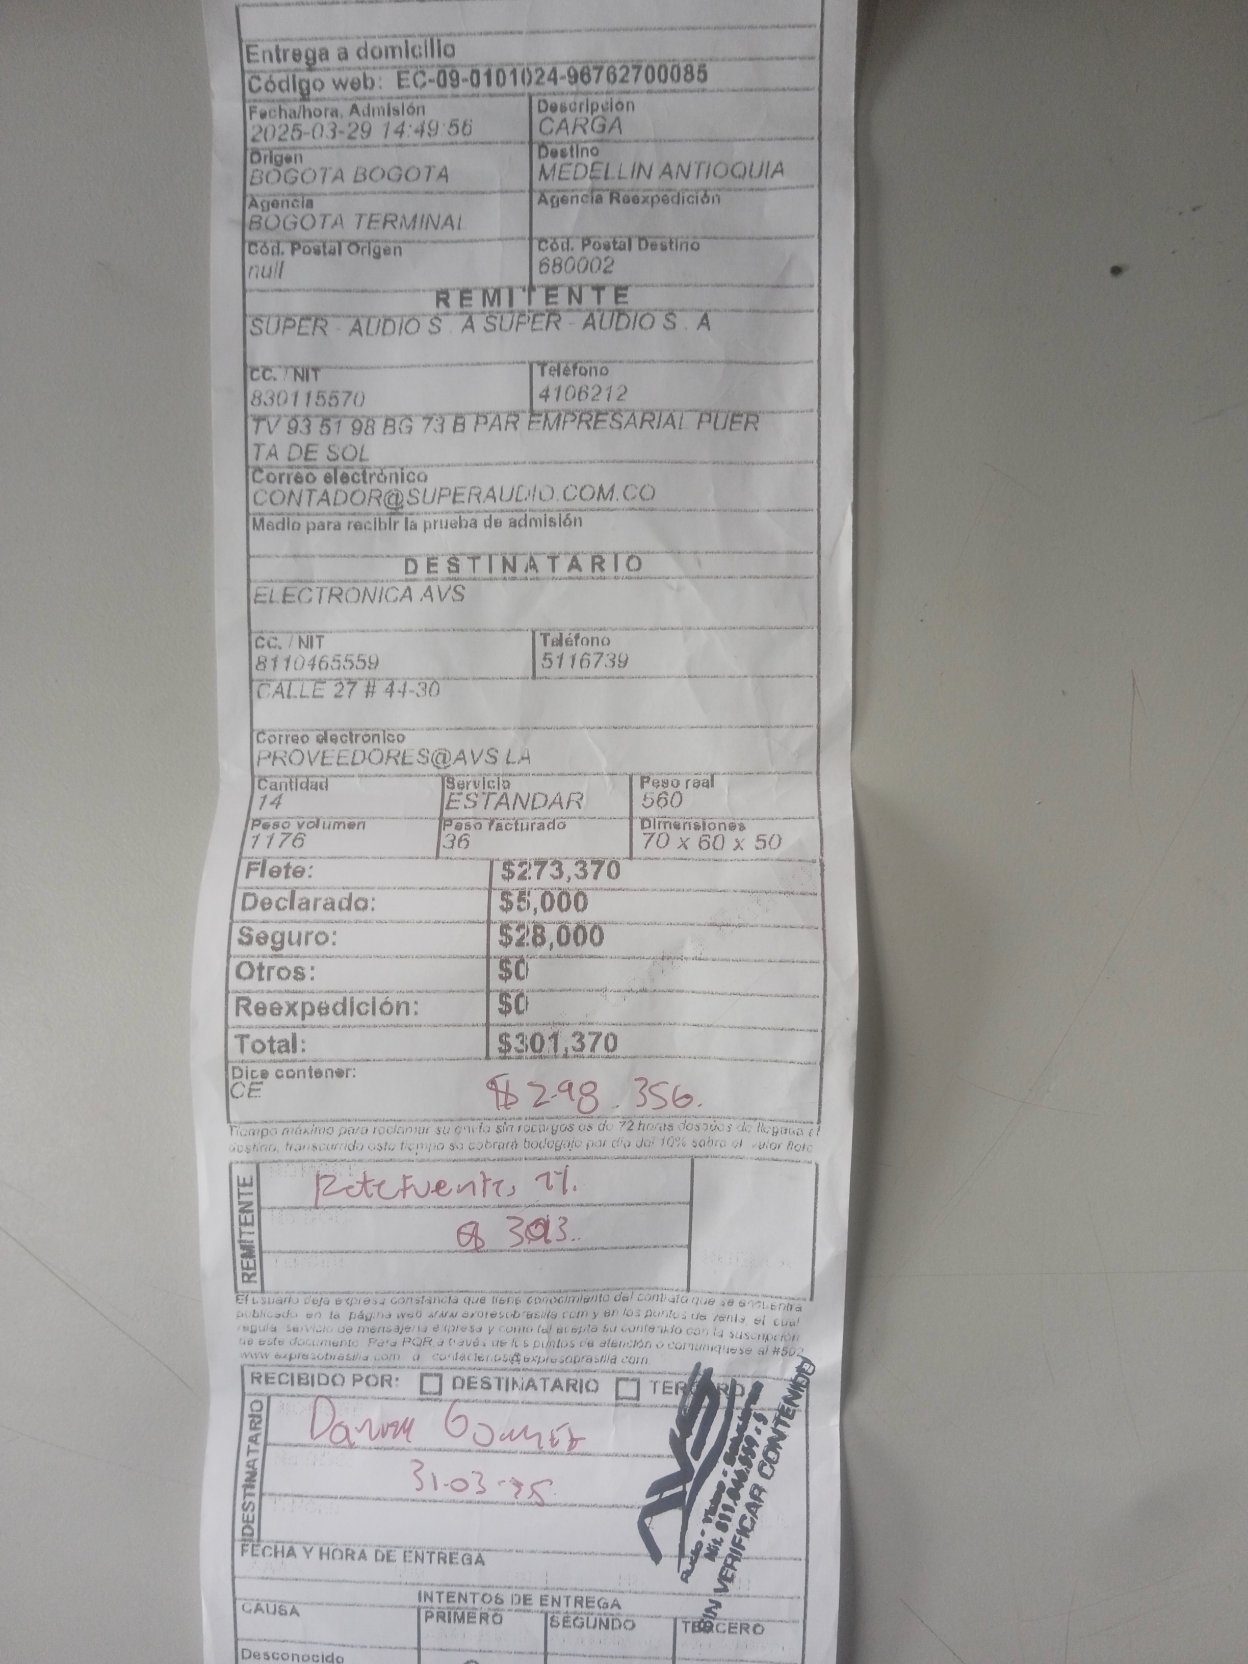 Entrega a domicilio
Código web: EC-09-0101024-96762700085
Fecha/hora, Admisión Descripción
2025-03-29 14:49:56 CARGA
Origen Destino
BOGOTA BOGOTA MEDELLIN ANTIOQUIA
Agencia Agencia Reexpedición
BOGOTA TERMINAL
Cód. Postal Origen Cód. Postal Destino
null 680002
REMITENTE
SUPER - AUDIO S . A SUPER - AUDIO S . A
CC. / NIT Teléfono
830115570 4106212
TV 93 51 98 BG 73 B PAR EMPRESARIAL PUER
TA DE SOL
Correo electrónico
CONTADOR@SUPERAUDIO.COM.CO
Medio para recibir la prueba de admisión
DESTINATARIO
ELECTRONICA AVS
CC. / NIT Teléfono
8110465559 5116739
CALLE 27 # 44-30
Correo electrónico
PROVEEDORES@AVS LA
Cantidad Servicio Peso real
14 ESTANDAR 560
Peso volumen Peso facturado Dimensiones
1176 36 70 x 60 x 50
Flete: $273,370
Declarado: $5,000
Seguro: $28,000
Otros: $0
Reexpedición: $0
Total: $301,370
Dice contener:
CE $298.356.
Tiempo máximo para reclamar su envío sin recargos es de 72 horas después de llegada el
destino, transcurrido este tiempo se cobrará bodegaje por día del 10% sobre el valor flete
REMITENTE
Retefuente, 1%.
$ 3013.
El usuario deja expresa constancia que tiene conocimiento del contrato que se encuentra
publicado en la página web www.expresobrasilia.com y en los puntos de venta, el cual
regula servicio de mensajería expresa y como tal acepta su contenido con la suscripción
de este documento. Para PQR a través de los puntos de atención o comuníquese al #502
www.expresobrasilia.com o contactenos@expresobrasilia.com
RECIBIDO POR: DESTINATARIO TERCERO
DESTINATARIO
Gomez
31-03-25
AVS
Nit. 811.046.559-9
SIN VERIFICAR CONTENIDO
FECHA Y HORA DE ENTREGA
INTENTOS DE ENTREGA
CAUSA PRIMERO SEGUNDO TERCERO
Desconocido